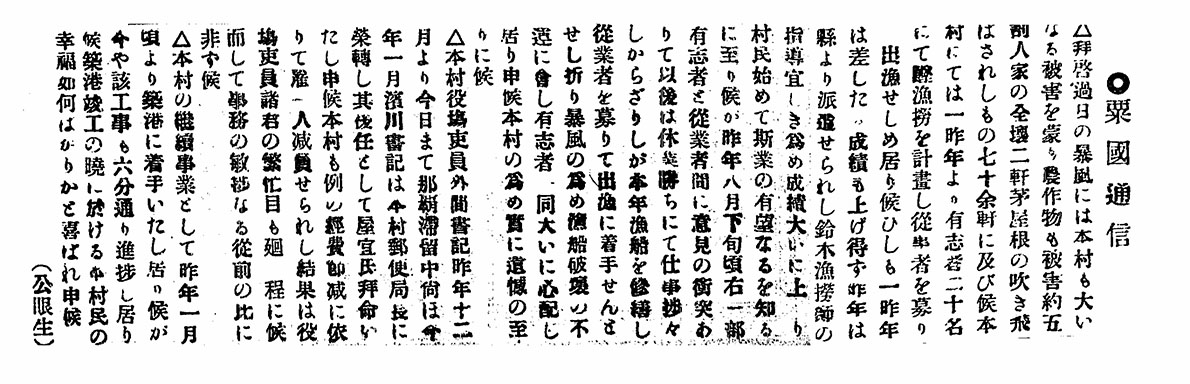 ◉粟國通信
△拜啓過日の暴風には本村も大い
なる被害を蒙り農作物も被害約五
割人家の全壞二軒茅屋根の吹き飛
ばされしもの七十余軒に及び候本
村にては一昨年より有志者二十名
にて鰹漁撈を計畫し從事者を募り
出漁せしめ居り候ひしも一昨年
は差した成績も上げ得ず昨年は
縣より派遣せられし鈴木漁撈師の
指導宜しき爲め成績大いに上り
村民始めて斯業の有望なるを知る
に至り候が昨年八月下旬頃右一部
有志者と從業者間に意見の衝突あ
りて以後は休業勝ちにて仕事捗々
しからざりしが本年漁船を修繕し
從業者を募りて出漁に着手せんと
せし折り暴風の爲め漁船破壞の不
運に會し有志者一同大いに心配し
居り申候本村の爲め實に遺憾の至
りに候
△本村役塲吏員外間書記昨年十二
月より今日まて那覇滯留中尚ほ今
年一月濱川書記は本村郵便局長に
榮轉し其後任として屋宜氏拜命い
たし申候本村も例の經費節减に依
りて雇一人减員せられし結果は役
塲吏員諸君の繁忙目も廻る程に候
而して事務の敏捗なる從前の比に
非ず候
△本村の繼續事業として昨年一月
頃より築港に着手いたし居り候が
今や該工事も六分通り進捗し居り
候築港竣工の曉に於ける本村民の
幸福如何ばかりかと喜ばれ申候
(公眼生)